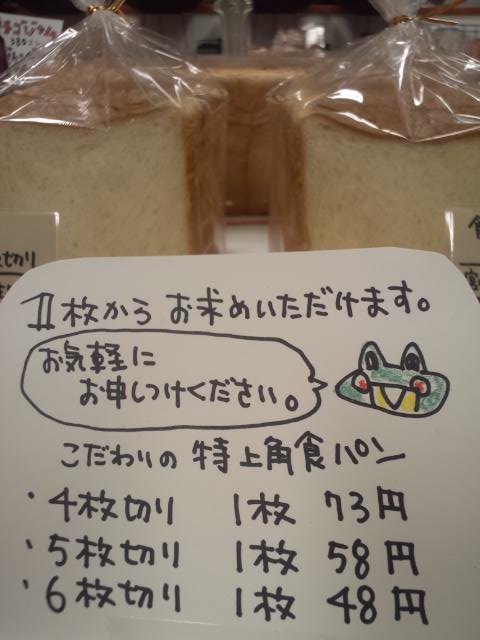 1枚からお求めいただけます。
お気軽に
お申しつけください。
こだわりの 特上角食パン
・4枚切り 1枚 73円
・5枚切り 1枚 58円
・6枚切り 1枚 48円
切り